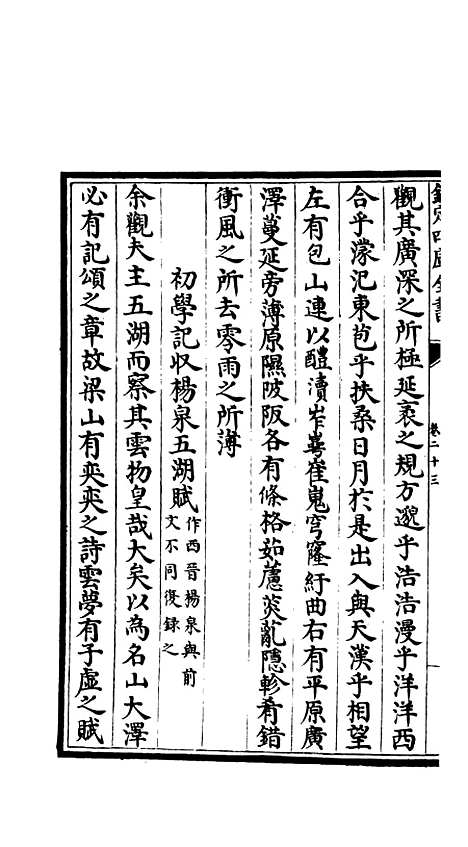 欽定四庫全書
卷二十三
觀其廣深之所極延袤之規方邈乎浩浩漫乎洋洋西
合乎濛汜東苞乎扶桑日月於是出入與天漢乎相望
左有包山連以醴瀆岝㟧崔嵬穹窿紆曲右有平原廣
澤蔓延旁薄原隰陂阪各有條格茹蘆菼薍隱軫肴錯
衝風之所去零雨之所薄
初學記収楊泉五湖賦作西晉楊泉與前
文不同復録之
余觀夫主五湖而察其雲物皇哉大矣以為名山大澤
必有記頌之章故梁山有奕奕之詩雲夢有子虛之賦